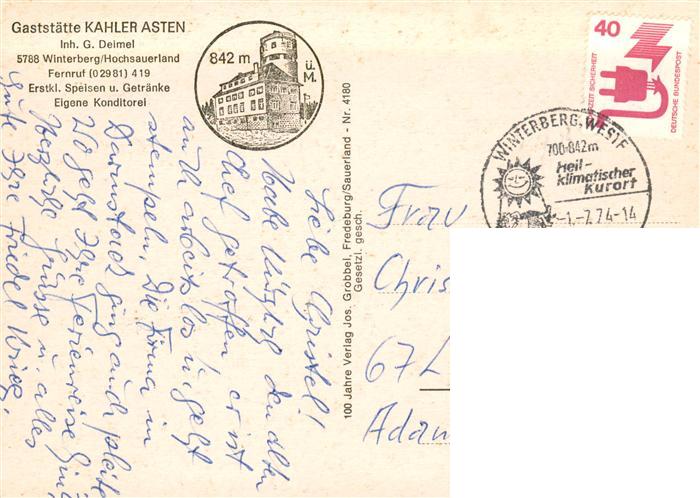 Gaststätte KAHLER ASTEN
Inh. G. Deimel
5788 Winterberg/Hochsauerland
Fernruf (02981) 419
Erstkl. Speisen u. Getränke
Eigene Konditorei
842 m ü. M.
40
UNFALLZEIT SICHERHEIT
DEUTSCHE BUNDESPOST
WINTERBERG, WESTF
700-842m
Heil-
klimatischer
Kurort
-1.-7.74-14
100 Jahre Verlag Jos. Grobbel, Fredeburg/Sauerland - Nr. 4180
Gesetzl. gesch.
Liebe Christel!
Habe kürzlich den alten
Chef getroffen er ist
auch arbeitslos u. geht
stempeln. Die Firma in
Darmstadt ging auch pleite
Wo geht Ihre Ferienreise hin
Herzliche Grüsse u. alles
Gute Ihre Friedel
Frau
Chris
67 L
Adam